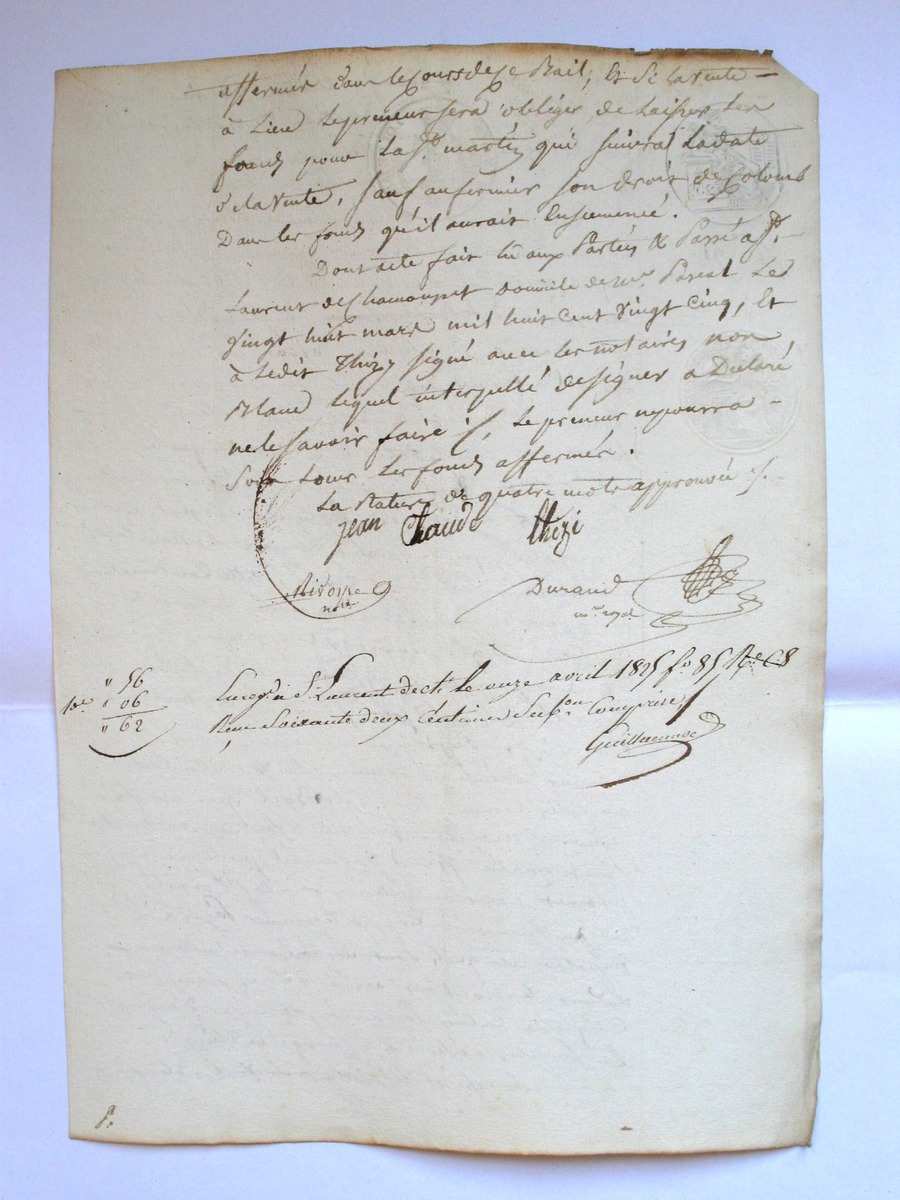 affermés dans le Cours de ce Bail, et Si la vente —
à Lieu le preneur sera obligér de laisser Les
fonds pour La St. martin qui suivra La date
de la Vente, sauf au fermier son droit de Colomb
Dans les fonds qu'il aurait Ensemencé.
Dont acte fait lû aux Parties & Passé a St. —
Laurent de Chamousset domicile de Mr. Pascal Le
vingt huit mars mil huit cent vingt cinq, Et
à Ledit Thizy signé avec les notaires non
Blanc lequel interpellé de signer a Déclaré
ne le savoir faire ·/., Le preneur ne pourra —
Sous Louer Les fonds affermés.
La Rature de quatre mots approuvée ·/.
jean Claude thizi
Durand
nre royal
nre
Enregé. à St. Laurent de Ch. Le onze avril 1825 fo. 85 Ro. C 8
Reçu Soixante deux Centimes Subon. Comprise
Guillaumot
10e
" 56
" 06
" 62